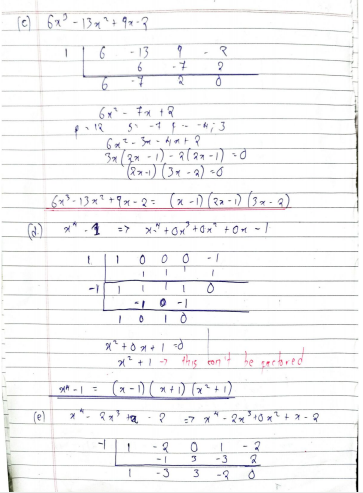 (c) 6x³ - 13x² + 9x - 2
1 | 6 -13 9 -2
6 -7 2
6 -7 2 0
6x² - 7x + 2
p = 12 S = -7 f = -4, 3
6x² - 3x - 4x + 2
3x(2x - 1) - 2(2x - 1) = 0
(2x-1) (3x - 2) = 0
6x³ - 13x² + 9x - 2 = (x - 1) (2x - 1) (3x - 2)
(d) x⁴ - 1 => x⁴ + 0x³ + 0x² + 0x - 1
1 | 1 0 0 0 -1
1 1 1 1
-1 | 1 1 1 1 0
-1 0 -1
1 0 1 0
x² + 0x + 1 = 0
x² + 1 → this can't be factored
x⁴ - 1 = (x - 1) (x + 1) (x² + 1)
(e) x⁴ - 2x³ + x - 2 => x⁴ - 2x³ + 0x² + x - 2
-1 | 1 -2 0 1 -2
-1 3 -3 2
1 -3 3 -2 0